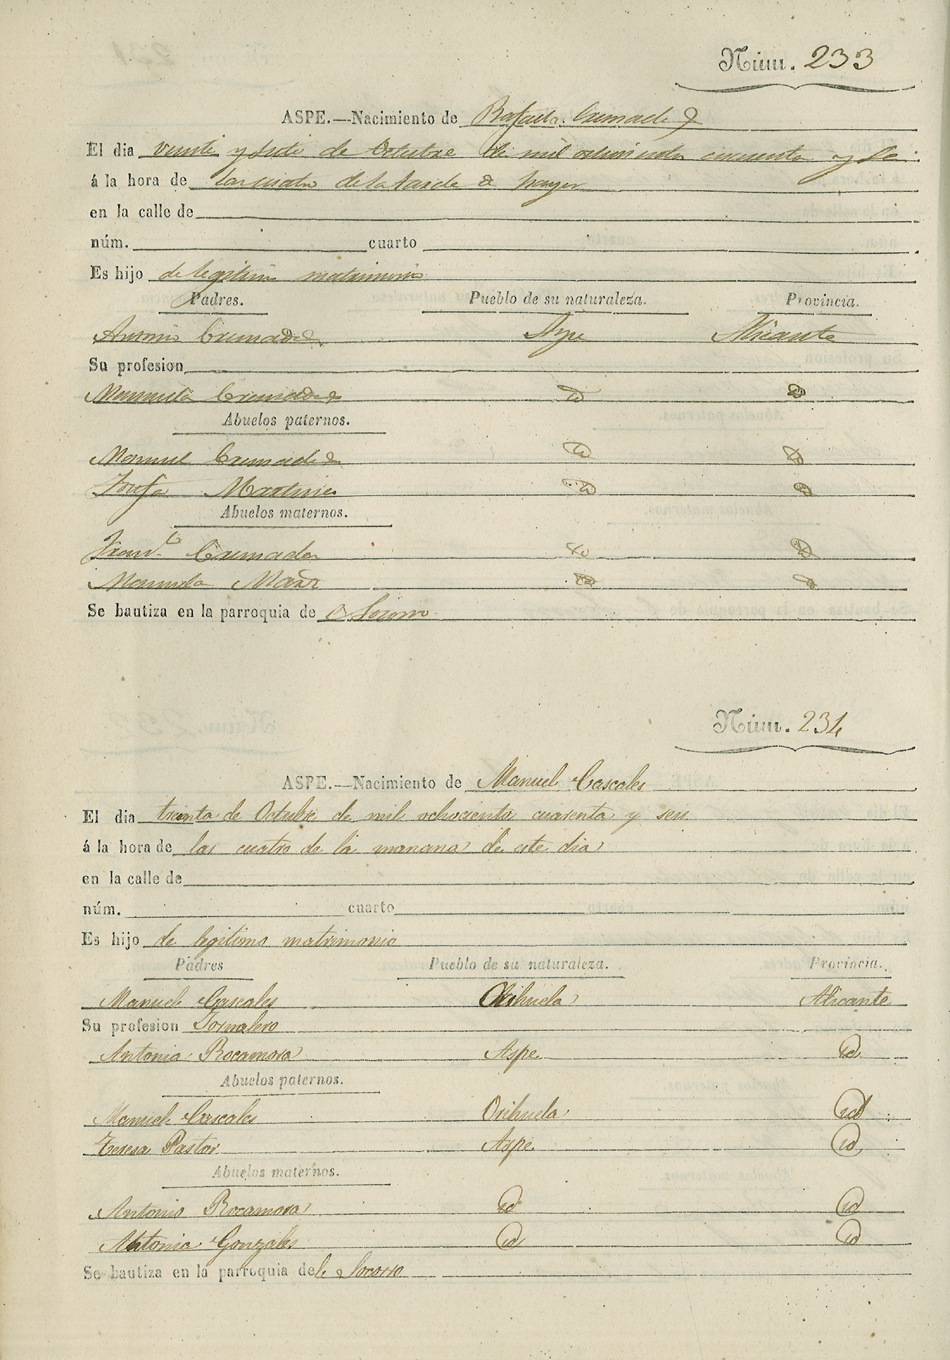 Núm. 233
ASPE.—Nacimiento de Rafaela Cremades
El dia veinte y siete de Octubre de mil ochocientos y
á la hora de las cuatro de la tarde de
en la calle de
núm. cuarto
Es hijo de legitimo matrimonio
Padres. Pueblo de su naturaleza. Provincia.
Antonio Cremades Aspe Alicante
Su profesion
Manuela Cremades id id
Abuelos paternos.
Manuel Cremades id id
Josefa Martines id id
Abuelos maternos.
Franco. Cremades id id
Manuela id id
Se bautiza en la parroquia de
Núm. 234
ASPE.—Nacimiento de Manuel Cascales
El dia treinta de Octubre de mil ochociento cuarenta y seis
á la hora de las cuatro de la manana de este dia
en la calle de
núm. cuarto
Es hijo de legitimo matrimonio
Padres Pueblo de su naturaleza. Provincia.
Manuel Cascales Orihuela Alicante
Su profesion Jornalero
Antonia Rocamora Aspe id
Abuelos paternos.
Manuel Cascales Orihuela id
Teresa Pastor Aspe id
Abuelos maternos.
Antonio Rocamora id id
Antonia Gonzales id id
Se bautiza en la parroquia del Socorro